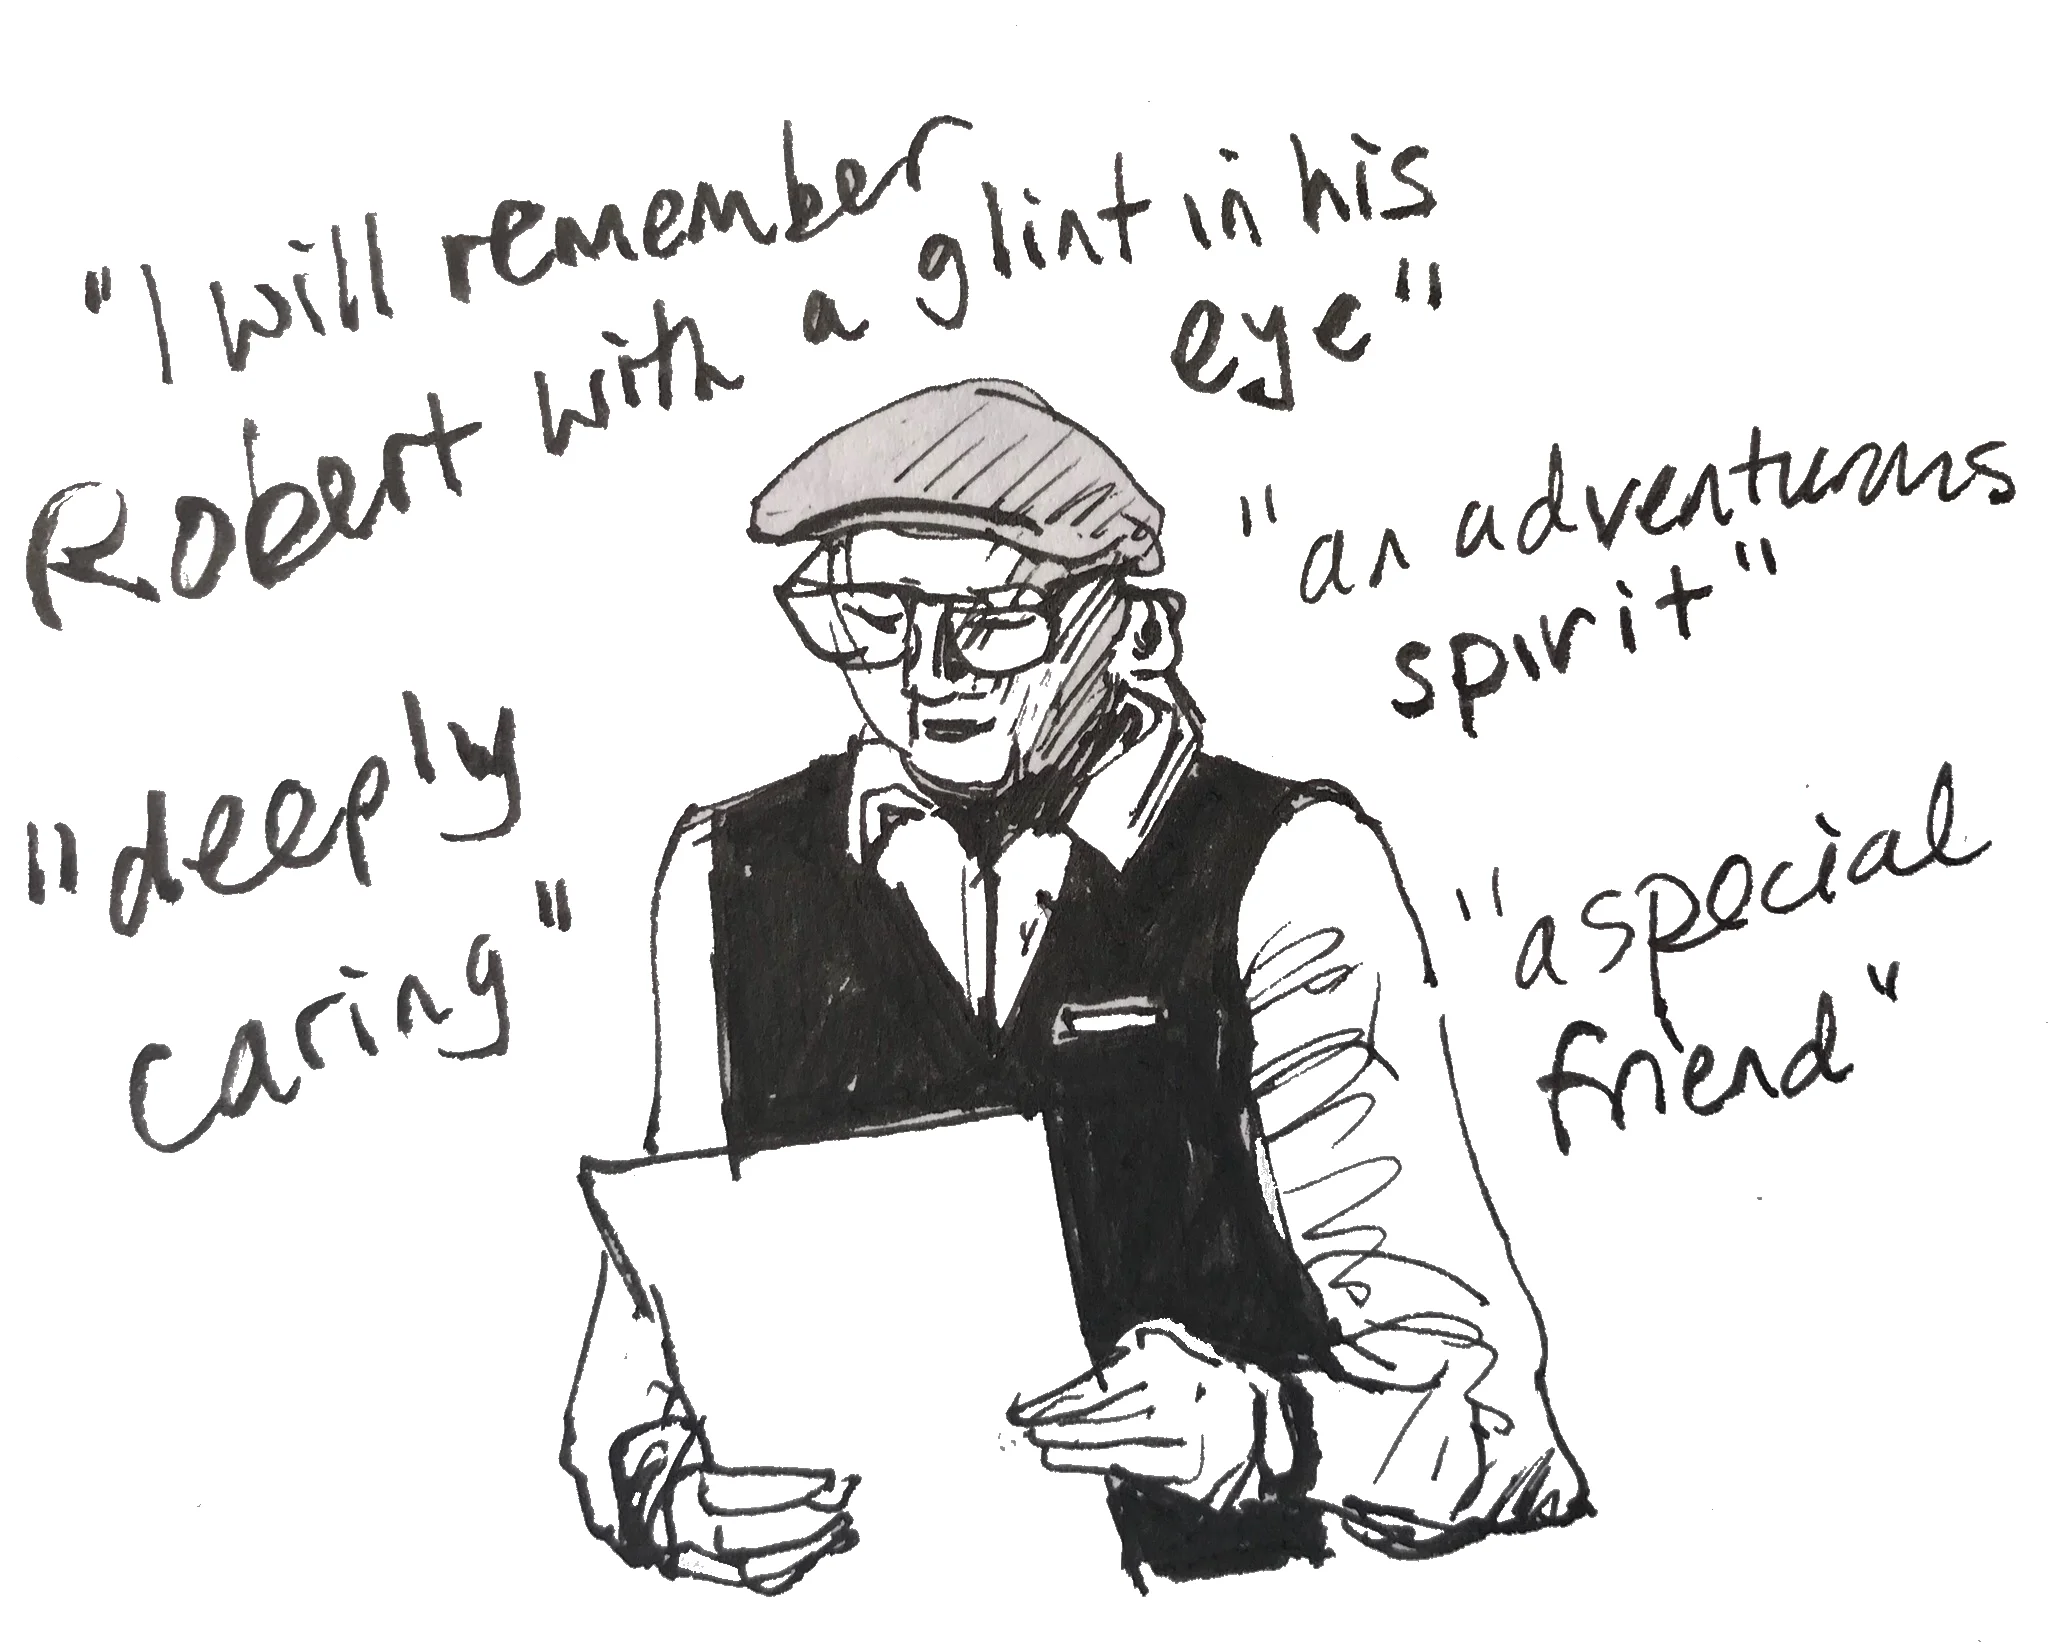 "I will remember
Robert with a glint in his
eye"
"an adventurous
spirit"
"deeply
caring"
"a special
friend"